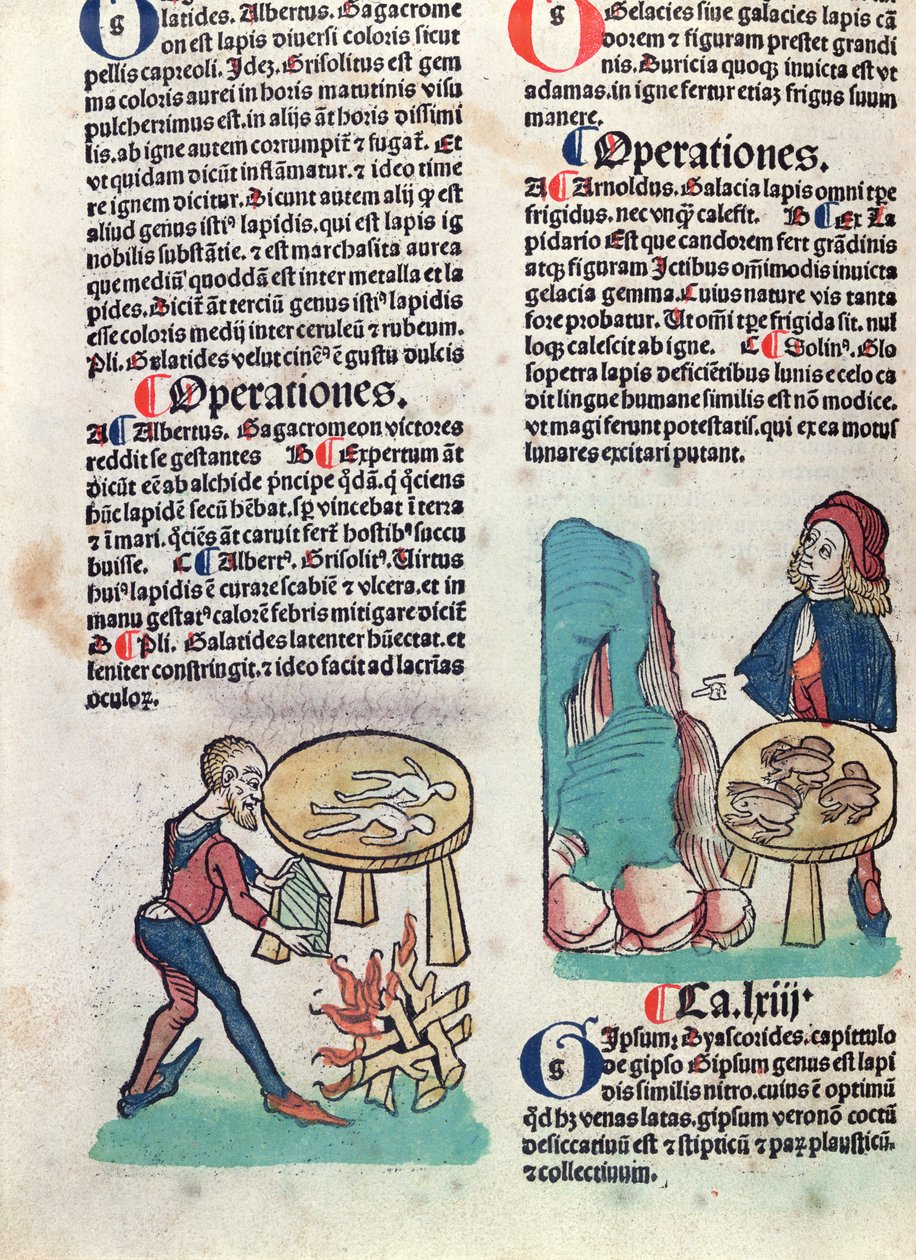 latides. Albertus. Gagacrome
on est lapis diuersi coloris sicut
pellis capreoli. Idez. Grisolitus est gem
ma coloris aurei in horis matutinis visu
pulcherrimus est. in alijs āt horis dissimi
lis. ab igne autem corrumpit᷑ ⁊ fugat᷑. Et
vt quidam dicūt inflāmatur. ⁊ ideo time
re ignem dicitur. Dicunt autem alij ꝙ est
aliud genus istiꝰ lapidis. qui est lapis ig
nobilis substātie. ⁊ est marchasita aurea
que mediū quoddā est inter metalla et la
pides. Dicit᷑ āt terciū genus istiꝰ lapidis
esse coloris medij inter ceruleū ⁊ rubeum.
Pli. Galatides velut cinēꝰ ē gustu dulcis
¶ Operationes.
A ¶ Albertus. Gagacromeon victores
reddit se gestantes B ¶ Expertum āt
dicūt eē ab alchide pͥncipe qͦdā. ꝙ qͦciens
hūc lapidē secū hēbat. sꝑ vincebat ī terra
⁊ ī mari. qͦciēs āt caruit fert᷑ hostibꝰ succu
buisse. C ¶ Albertꝰ. Grisolitꝰ. Uirtus
huiꝰ lapidis ē curare scabiē ⁊ vlcera. et in
manu gestatꝰ calorē febris mitigare dicit᷑
D ¶ Pli. Galatides latenter hūectat. et
leniter constringit. ⁊ ideo facit ad lacrīas
oculoꝝ.
G g Gelacies siue galacies lapis cā
dorem ⁊ figuram prestet grandi
nis. Duricia quoqꝫ inuicta est vt
adamas. in igne fertur etiaz frigus suum
manere.
¶ Operationes.
A ¶ Arnoldus. Galacia lapis omni tꝑe
frigidus. nec vnqͣꝫ calefit. B ¶ Ex La
pidario Est que candorem fert grādinis
atqꝫ figuram Ictibus om̄imodis inuicta
gelacia gemma. Cuius nature vis tanta
fore probatur. Ut om̄i tꝑe frigida sit. nul
loqꝫ calescit ab igne. C ¶ Solinꝰ. Glo
sopetra lapis deficiētibus lunis e celo ca
dit lingue humane similis est nō modice.
vt magi ferunt potestatis. qui ex ea motus
lunares excitari putant.
¶ Ca. lxiij
G g Ipsum. Dyascorides. capittulo
de gipso Gipsum genus est lapi
dis similis nitro. cuius ē optimū
qd̄ hꝫ venas latas. gipsum veronō coctū
desiccatiuū est ⁊ stipticū ⁊ paꝝ plausticū.
⁊ collectiuum.